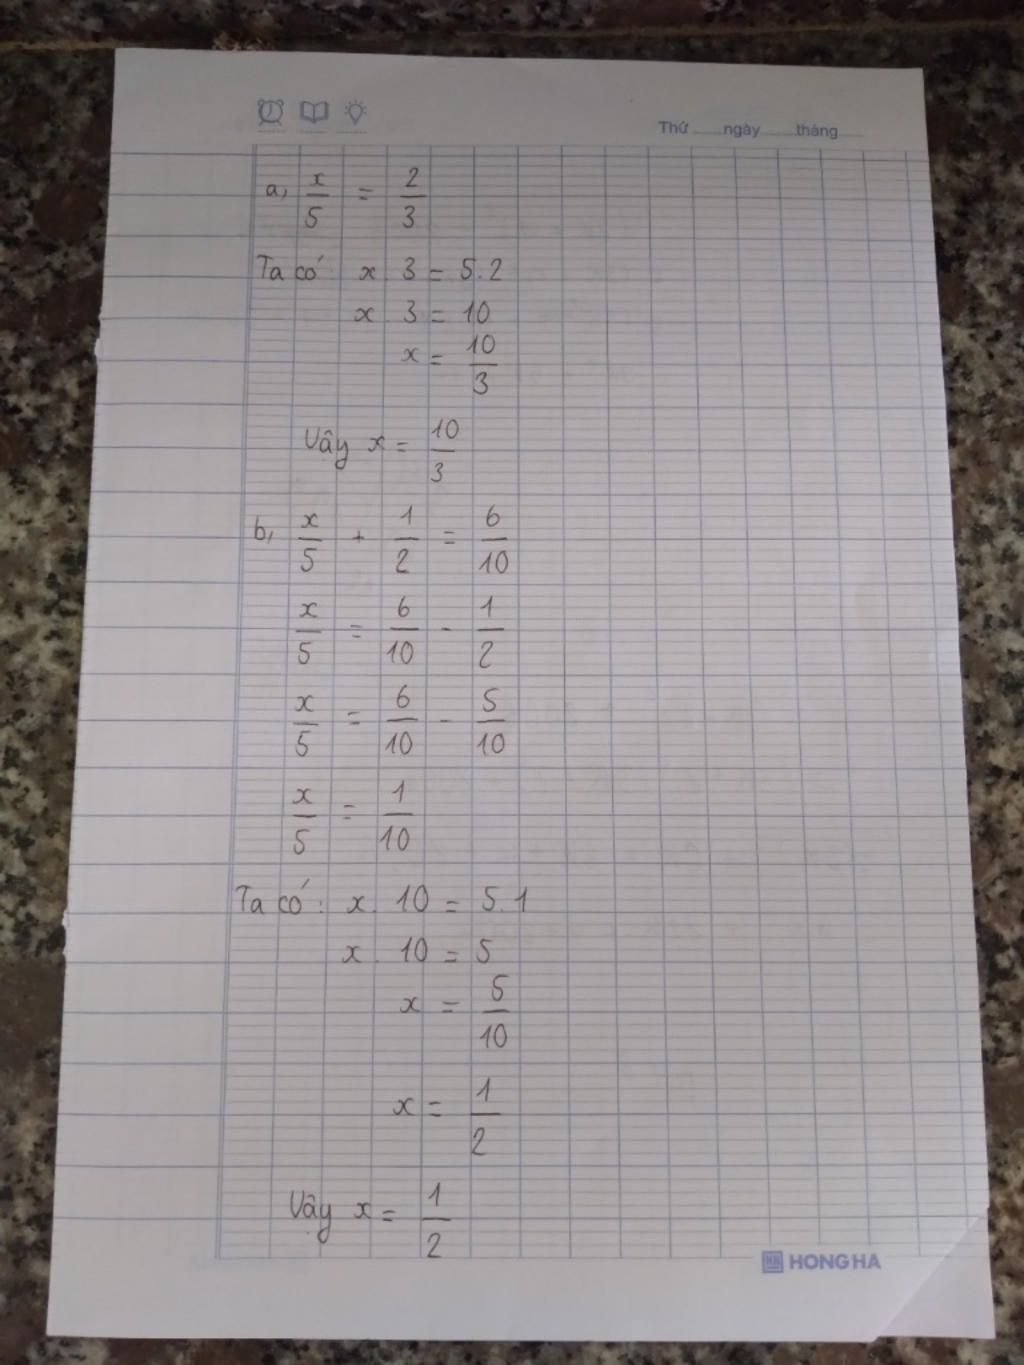 Thứ ngày tháng
a, x/5 = 2/3
Ta có: x . 3 = 5.2
x . 3 = 10
x = 10/3
Vậy x = 10/3
b, x/5 + 1/2 = 6/10
x/5 = 6/10 - 1/2
x/5 = 6/10 - 5/10
x/5 = 1/10
Ta có: x . 10 = 5.1
x . 10 = 5
x = 5/10
x = 1/2
Vậy x = 1/2
HONG HA